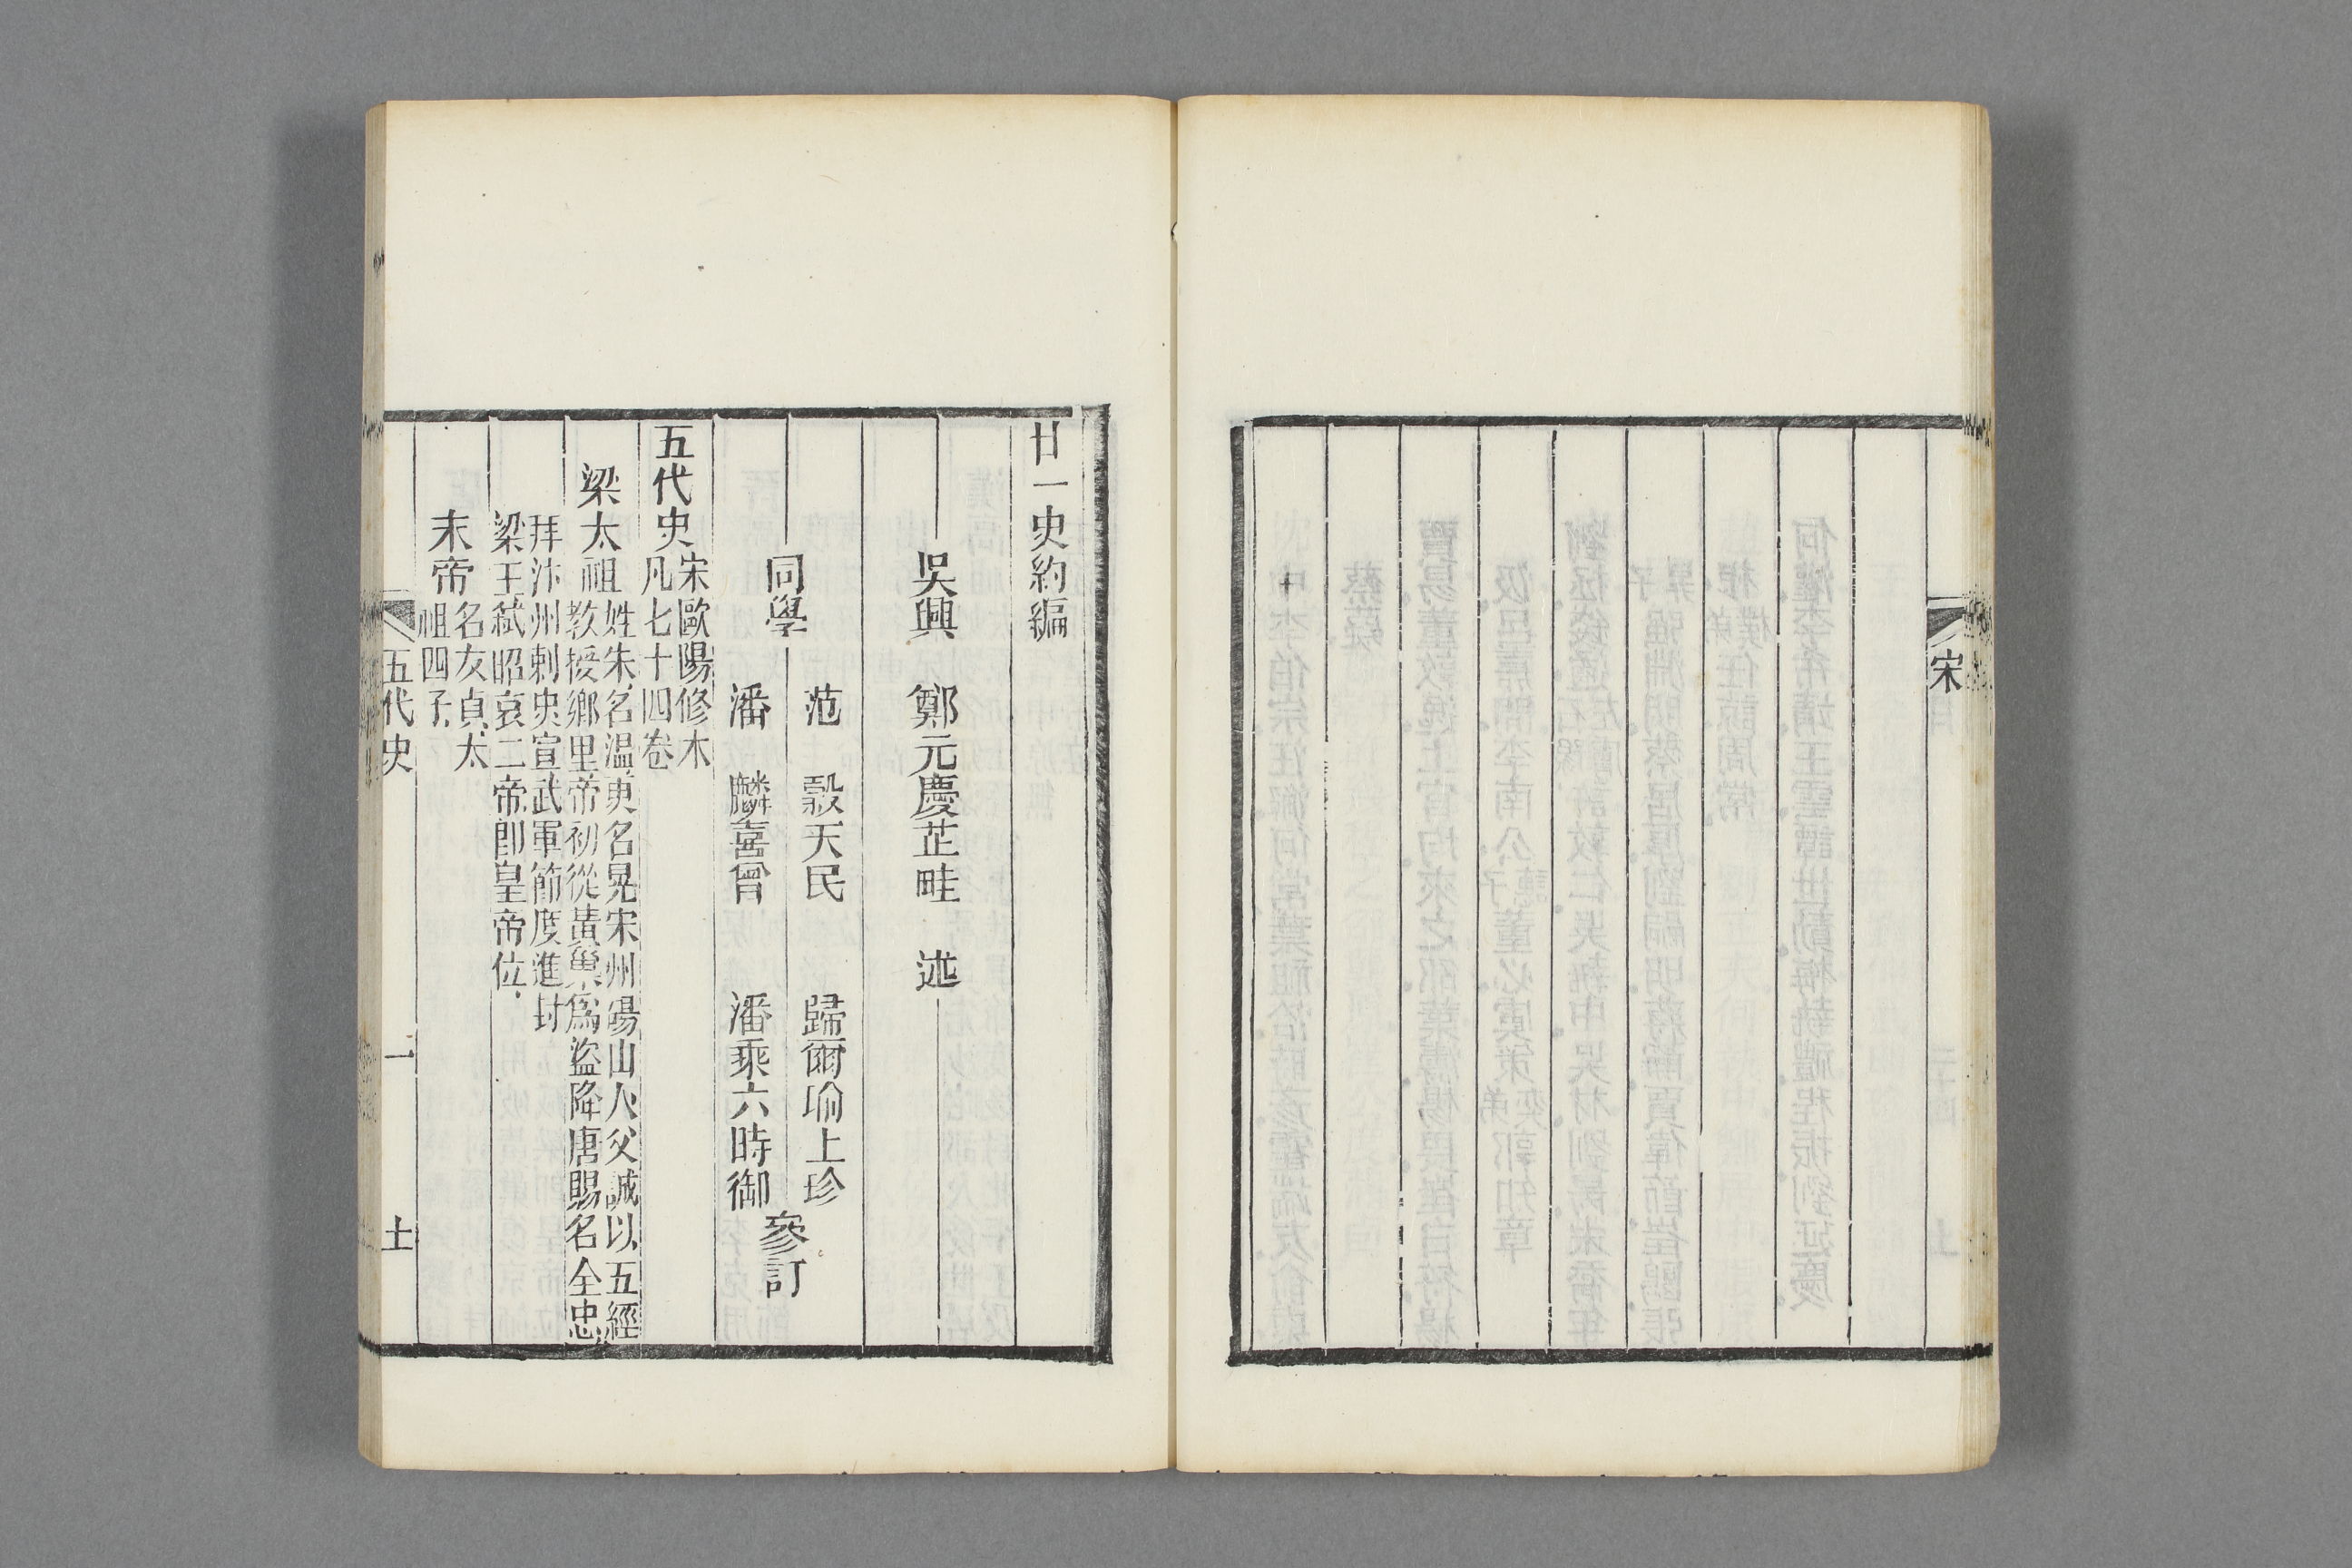 宋
廿一史約編
吳興　鄭元慶芷畦　述
同學
范　㲄天民　歸爾瑜上珍
潘　麟喜曾　潘乘六時御
參訂
五代史
宋歐陽修本
凡七十四卷
梁太祖
姓朱名溫更名晃宋州碭山人父誠以五經
教授鄉里帝初從黃巢爲盜降唐賜名全忠
拜汴州刺史宣武軍節度進封
梁王弑昭哀二帝卽皇帝位
末帝
名友貞太
祖四子
五代史　一　土